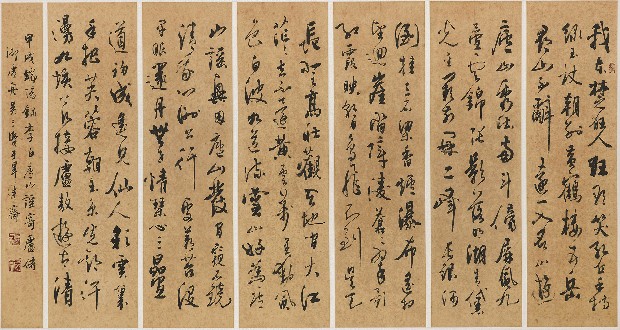 我本楚狂人狂歌笑孔丘手持
綠玉杖朝別黃鶴樓五岳
尋山不辭遠一入名山遊
廬山秀出南斗傍屏風九
疊雲錦張影落明湖青黛
光金闕前開二峰長銀河
倒挂三石梁香爐瀑布遙相
望迴崖沓嶂凌蒼蒼翠影
紅霞映朝日鳥飛不到吳天
長登高壯觀天地間大江
茫茫去不還黃雲萬里動風
色白波九道流雪山好為廬
山謠興因廬山發閑窺石鏡
清我心謝公行處蒼苔沒
早服還丹無世情琴心三疊
道初成遙見仙人彩雲裏
手把芙蓉朝玉京先期汗
漫九垓上願接盧敖遊太清
甲戌端陽錄李白廬山謠寄盧侍
御虛舟